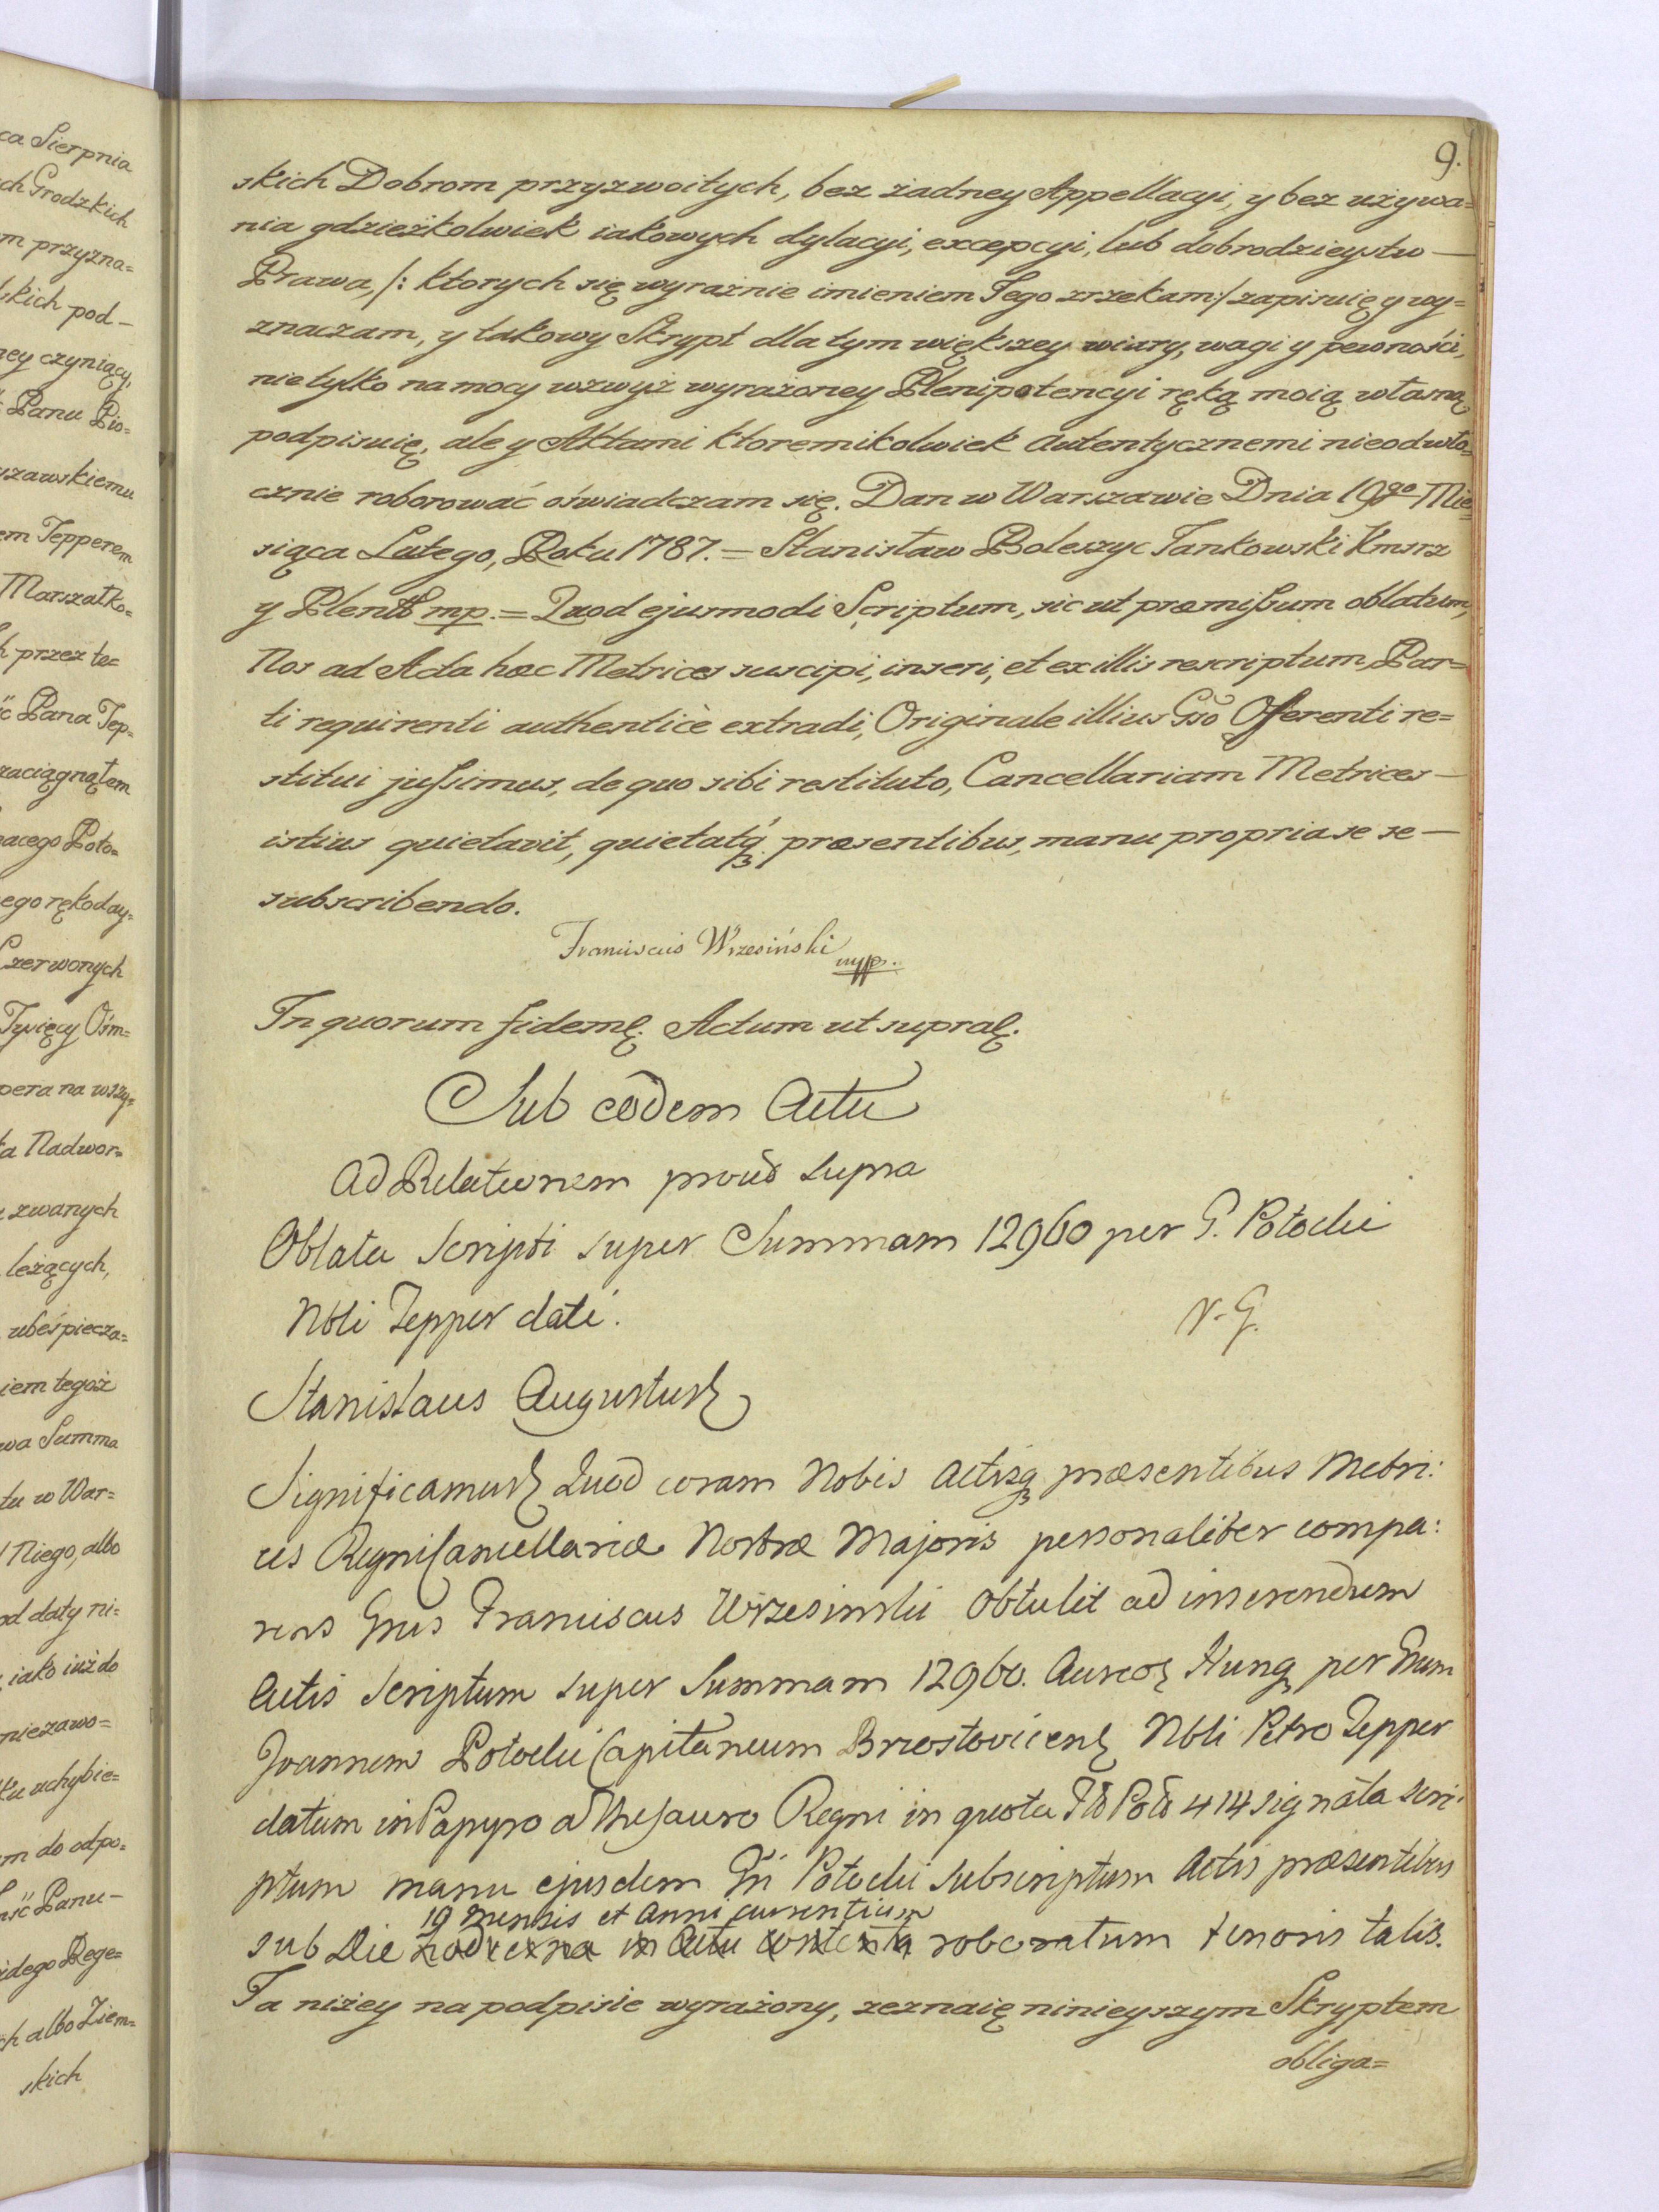 ca Sierpnia
ch Grodzkich
m przyzna=
skich pod-
ney czyniący,
Panu Pio=
szawskiemu
em Tepperem
Marszałko=
h przez te=
ć Pana Tep-
zaciągnąłem
acego Poto=
ego rękoday=
Czerwonych
Tysięcy Ośm=
pera na wszy=
ta Nadwor=
zwanych
leżących,
ubeśpiecza=
iem tegoż
wa Summa
tu w War=
Niego, albo
od daty ni=
iako iuż do
niezawo=
ku uchybie=
m do odpo=
ść Panu-
idego Rege=
ch albo Ziem=
skich
9.
skich Dobrom przyzwoitych, bez żadney Appellacyi, y bez używa=
nia gdzieżkolwiek iakowych dylacyi, excepcyi, lub dobrodzieystw —
Prawa, /: ktorych się wyraźnie imieniem Jego zrzekam :/ zapisuię y wy=
znaczam, y takowy Skrypt dla tym większey wiary, wagi y pewności,
nietylko na mocy wzwyż wyrażoney Plenipotencyi ręką moią własną
podpisuię, ale y Aktami ktoremikolwiek autentycznemi nieodwło=
cznie roborować oświadczam się. Dan w Warszawie Dnia 19go Mie=
siąca Lutego, Roku 1787. = Stanisław Boleszyc Jankowski Kmsrz
y Plentt mp. = Quod ejusmodi Scriptum, sic ut præmissum oblatum,
Nos ad Acta hæc Metrices suscipi, inseri, et ex illis rescriptum Par=
ti requirenti authenticè extradi, Originale illius Gso Offerenti re=
stitui jussimus, de quo sibi restituto, Cancellariam Metrices —
istius quietavit, quietatq3 præsentibus, manu propria se se —
subscribendo.
Franciscus Wrzesiński mpp.
In quorum fidem &. Actum ut supra &.
Sub eodem Actu
Ad Relationem prout supra
Oblata Scripti super Summam 12960 per G. Potocki
Nbli Tepper dati.
N. G.
Stanislaus Augustus &
Significamus & Quod coram Nobis Actisq3 præsentibus Metri:
ces Regni Cancellariæ Nostræ Majoris personaliter compa:
rens Gnus Franciscus Wrzesinski obtulit ad inserendum
Actis Scriptum super Summam 12960. Aureor Hung per Gnum
Joannem Potocki Capitaneum Brzestoviicens Nbli Petro Tepper
datum in Papyro a Thesauro Regni in quota 414 signata scri:
ptum manu ejusdem Gni Potocki subscriptum Actis præsentibus
19 mensis et Anni currentium
sub Die hodierna in Actu contenta roboratum tenoris talis.
Ja niżey na podpisie wyrażony, zeznaię ninieyszym Skryptem
obliga=